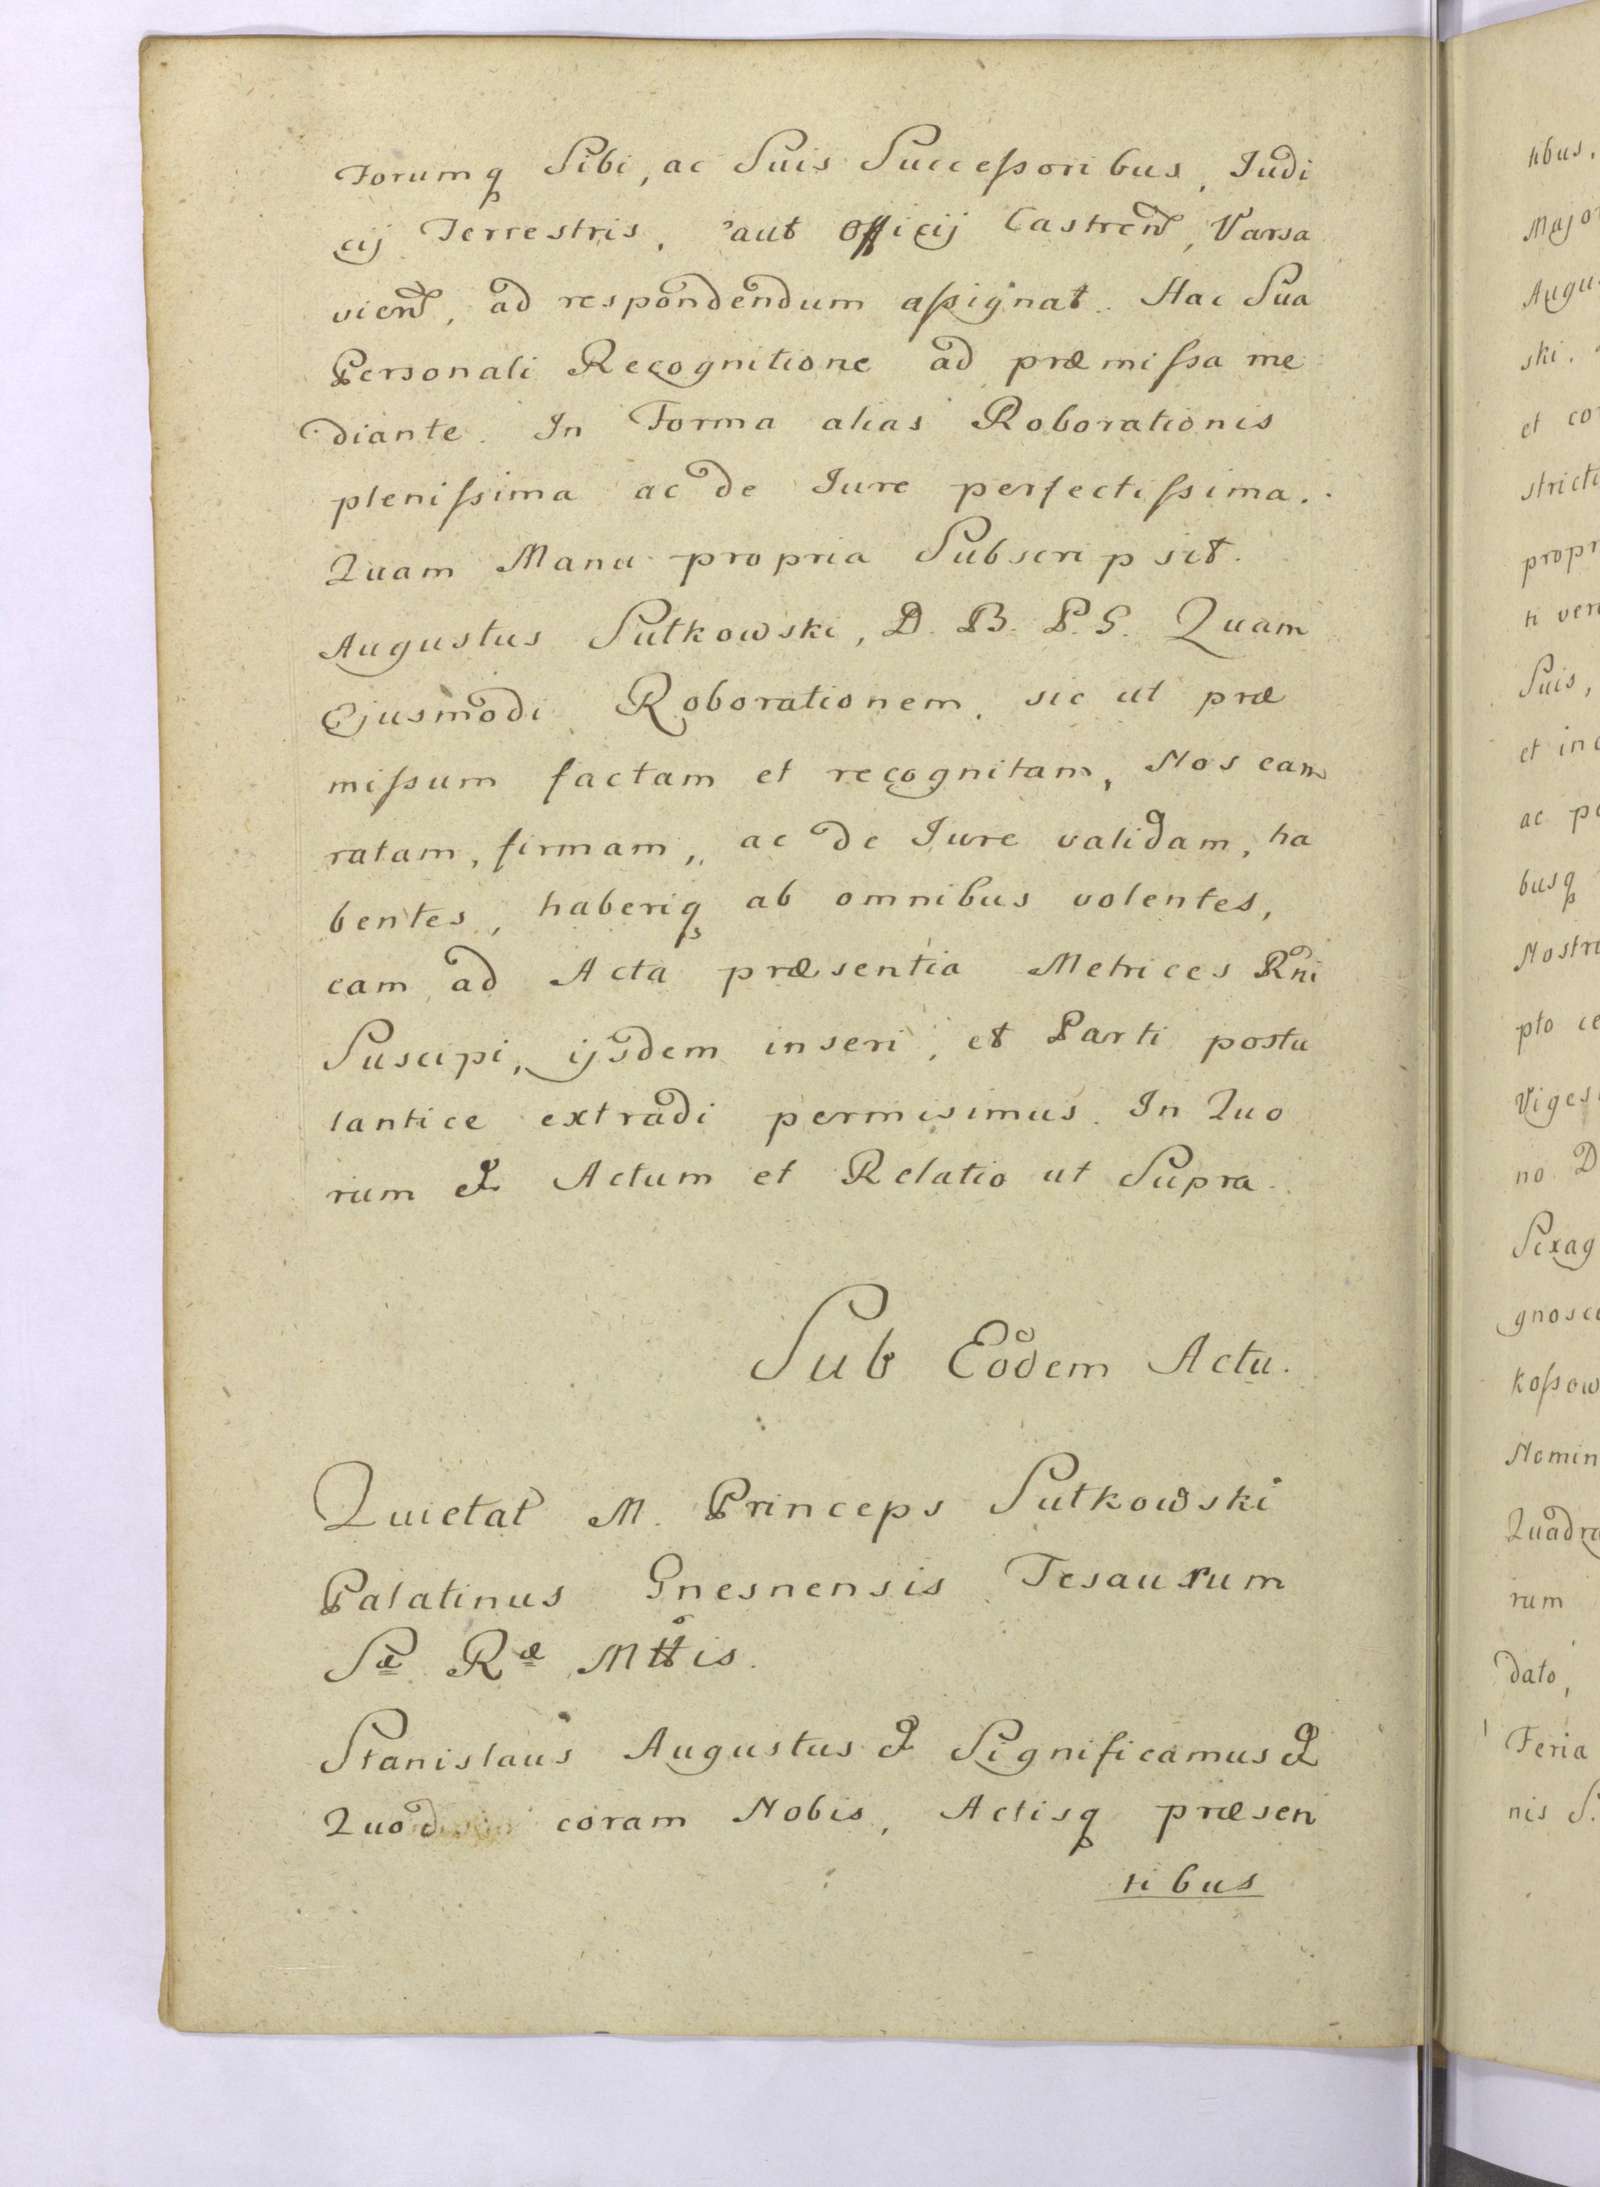 Forumq Sibi, ac Suis Successoribus, Judi
cij Terrestris, aut Officij Castren, Varsa
vien, ad respondendum assignat. Hac Sua
Personali Recognitione ad præmissa me
diante. In Forma alias Roborationis
plenissima ac de Jure perfectissima.
Quam Manu propria Subscripsit.
Augustus Sułkowski, D. B. P. G. Quam
Ejusmodi Roborationem, sic ut præ
missum factam et recognitam, Nos eam
ratam, firmam, ac de Jure validam, ha
bentes, haberiq ab omnibus volentes,
eam ad Acta præsentia Metrices Rni
Suscipi, ijsdem inseri, et Parti postu
lantice extradi permisimus. In Quo
rum & Actum et Relatio ut Supra.
Sub Eodem Actu.
Quietat M. Princeps Sułkowski
Palatinus Gnesnensis Tesaurum
Sæ Ræ Mttis.
Stanislaus Augustus & Significamus &
Quod coram Nobis, Actisq præsen
tibus
tibus,
Major
Augus
ski.
et co
stricti
propr
ti ver
Suis,
et in
ac pe
busq
Nostri
pto ce
Viges
no D
Sexag
gnosce
kossow
Nomin
Quadra
rum
dato,
Feria
nis S.